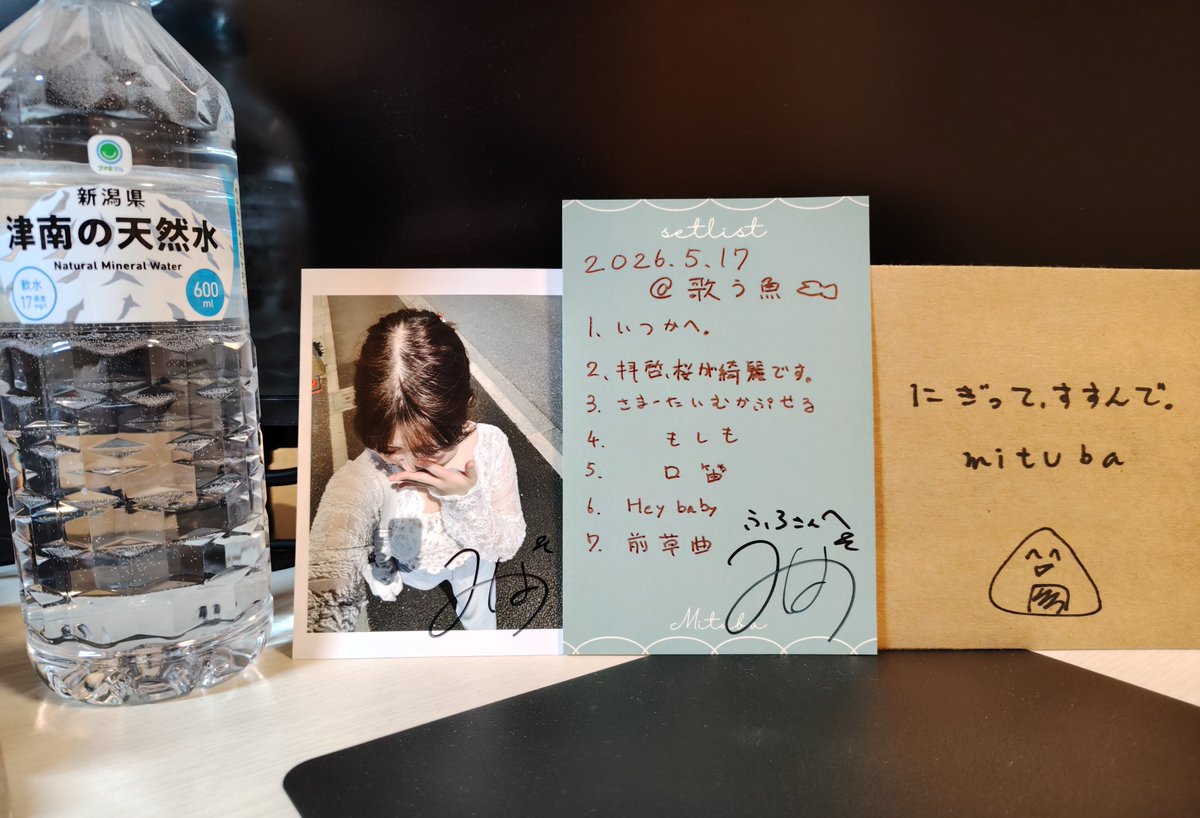 ファミマル
新潟県
津南の天然水
Natural Mineral Water
軟水
17
600
ml
setlist
2026.5.17
@歌う魚
1. いつかへ。
2. 拝啓、桜が綺麗です。
3. さまーたいむかぷせる
4. もしも
5. 口笛
6. Hey baby
7. 前草曲
ふろさんへ
Mituba
にぎって、すすんで。
mituba